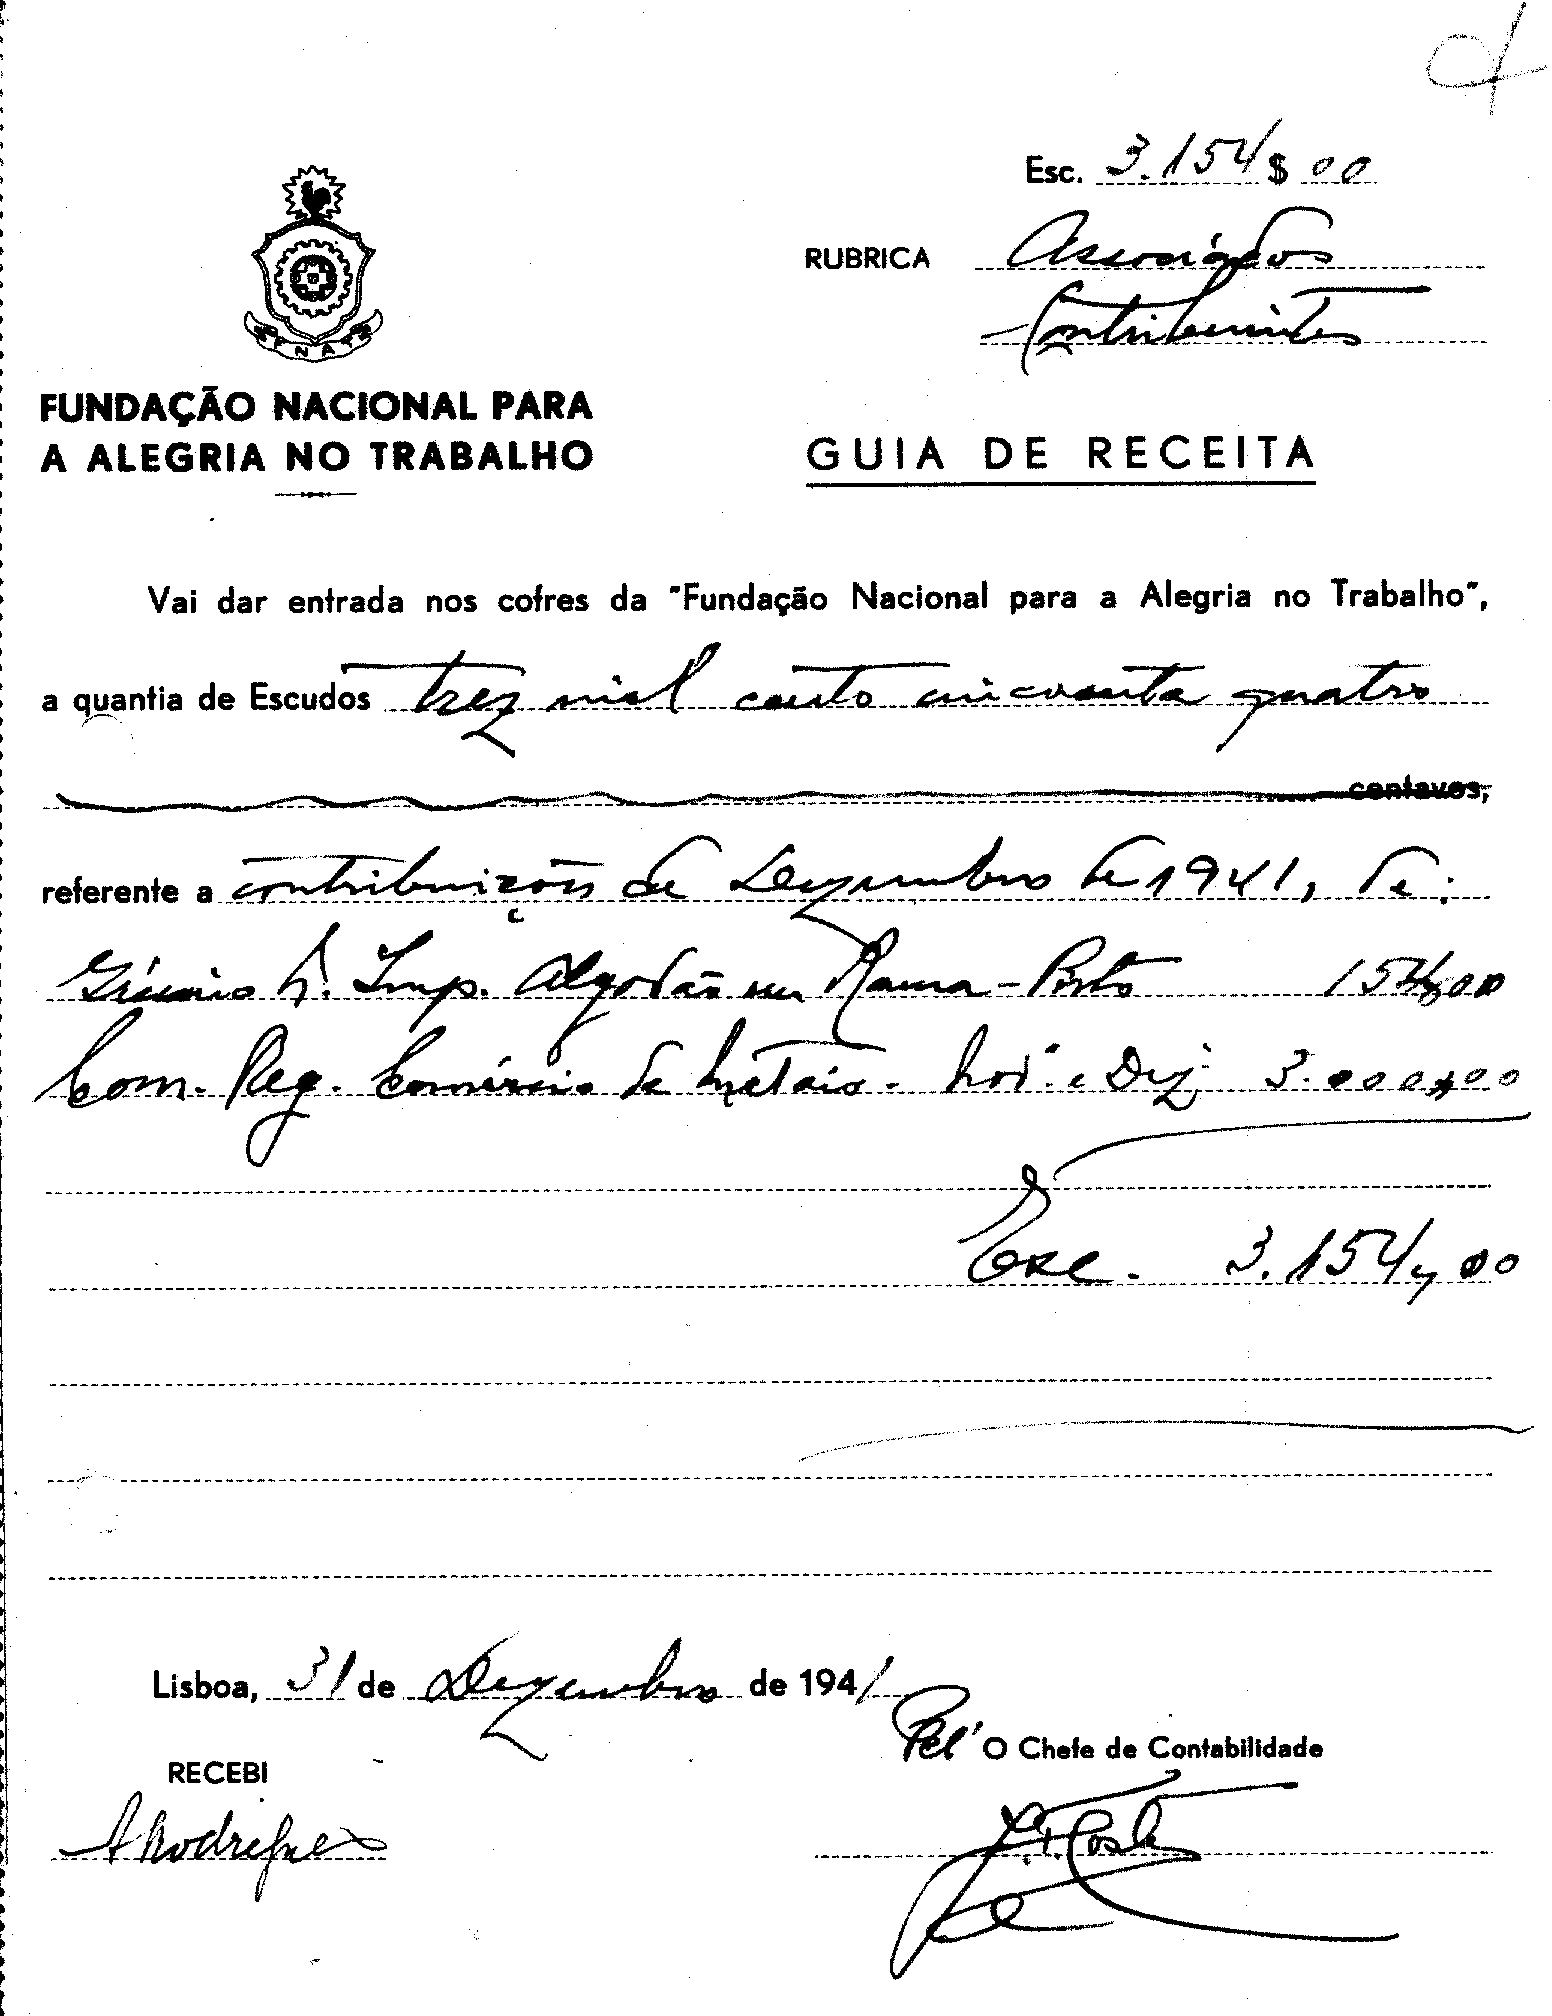 Esc. 3.154$00
RUBRICA Associados
Contribuintes
FNAT
FUNDAÇÃO NACIONAL PARA
A ALEGRIA NO TRABALHO
GUIA DE RECEITA
Vai dar entrada nos cofres da "Fundação Nacional para a Alegria no Trabalho",
a quantia de Escudos trez mil cento cincoenta quatro
centavos,
referente a contribuições de Dezembro de 1941, de:
Grémio N. Imp. Algodão em Rama - Porto 154$00
Com. Reg. Comércio de Metais - Nov. e Dez. 3.000$00
Esc. 3.154,00
Lisboa, 31 de Dezembro de 1941
Pel' O Chefe de Contabilidade
RECEBI
ARodrigues
Costa